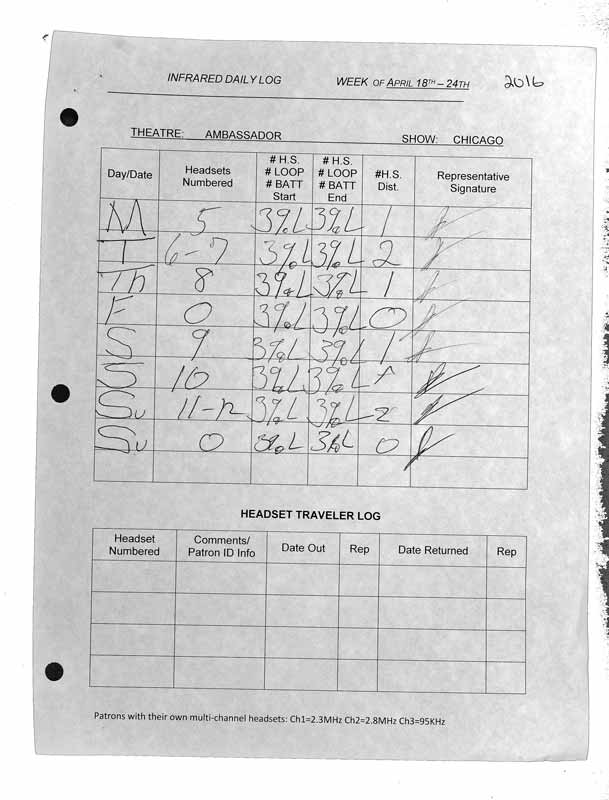 INFRARED DAILY LOG WEEK OF APRIL 18TH – 24TH 2016
THEATRE: AMBASSADOR SHOW: CHICAGO
Day/Date Headsets Numbered # H.S. # LOOP # BATT Start # H.S. # LOOP # BATT End #H.S. Dist. Representative Signature
M 5 1
T 6-7 2
Th 8 1
F 0 0
S 9 1
S 10
Su 11-12 2
Su 0 0
HEADSET TRAVELER LOG
Headset Numbered Comments/ Patron ID Info Date Out Rep Date Returned Rep
Patrons with their own multi-channel headsets: Ch1=2.3MHz Ch2=2.8MHz Ch3=95KHz